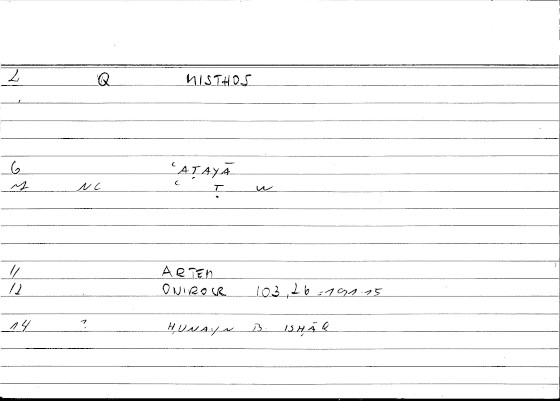 2 Q MISTHOS
6 ʿAṬAYĀ
M NC ʿ Ṭ W
11 ARTEM
12 ONIROCR 103,26 = 191 15
14 ? ḤUNAYN B. ISḤĀQ